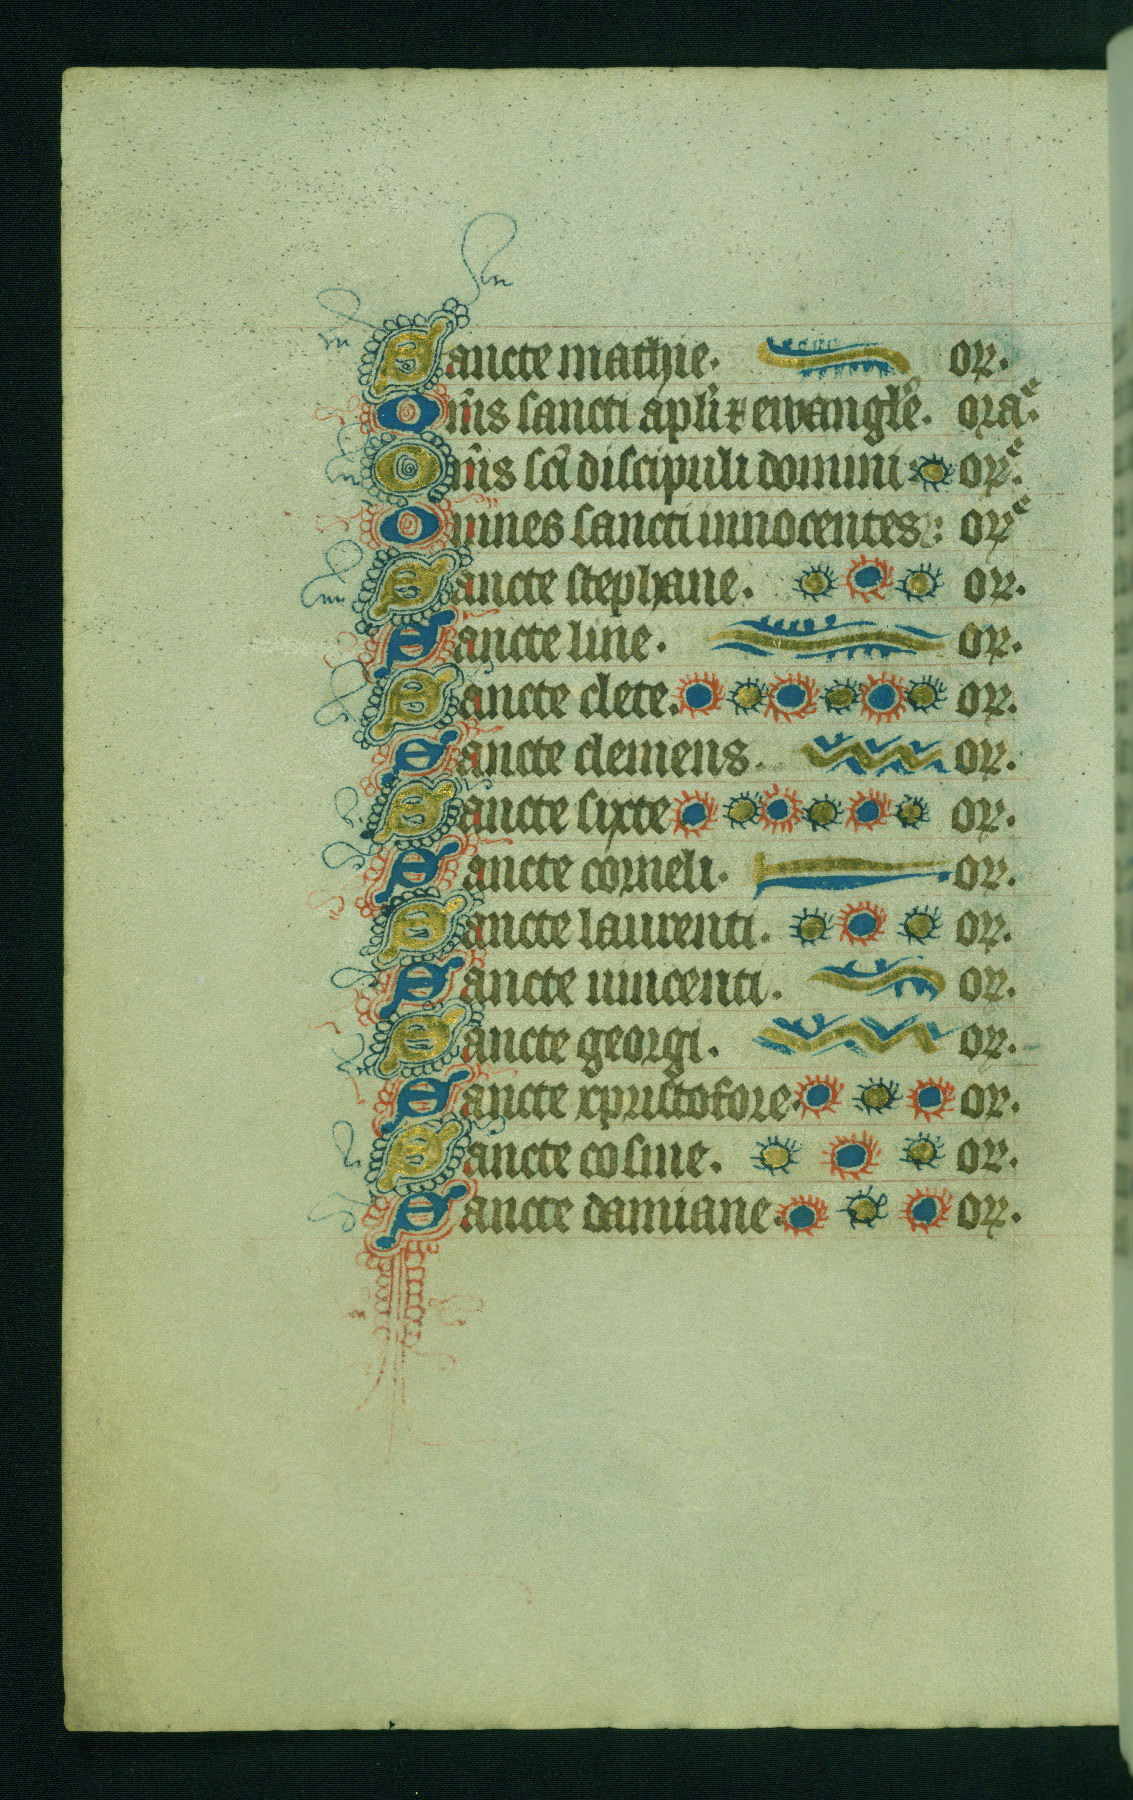 Sancte mathie. or.
Om̄s sancti apl̄i ⁊ ewangl̄e. oraᵉ.
Om̄s sc̄i discipuli domini: orᵉ.
Omnes sancti innocentes: orᵉ
Sancte stephane. or.
Sancte line. or.
Sancte clete. or.
Sancte clemens. or.
Sancte sixte or.
Sancte corneli. or.
Sancte laurenti. or.
Sancte uincenti. or.
Sancte georgi. or.
Sancte xpristofore. or.
Sancte cosme. or.
Sancte damiane. or.